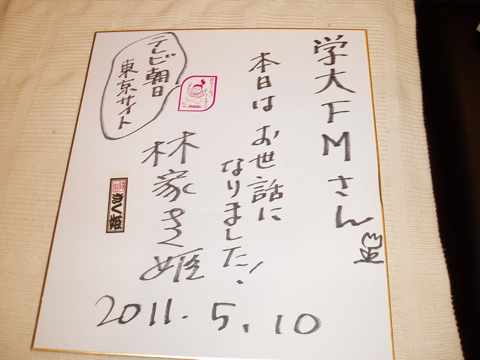 学大FMさん
本日はお世話に
なりました!
テレビ朝日
東京サイト
林家きく姫
きく姫
2011.5.10